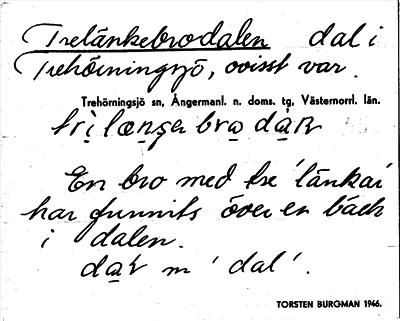 Trelänkebrodalen dal i
Trehörningsjö, ovisst var.
Trehörningsjö sn, Ångermanl. n. doms. tg, Västernorrl. län.
En bro med tre 'länkar'
har funnits över en bäck
i dalen.
m 'dal'.
TORSTEN BURGMAN 1946.